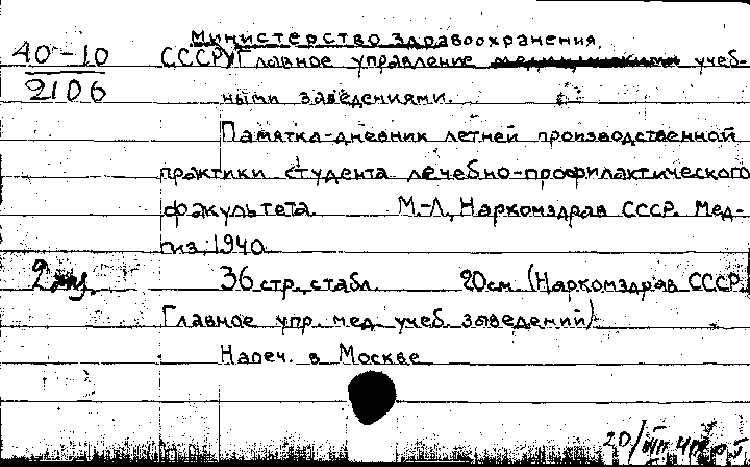 Министерство здравоохранения
40-10 СССР. Главное управление учеб-
2106 ными заведениями.
Памятка-дневник летней производственной
практики студента лечебно-профилактического
факультета. М.-Л., Наркомздрав СССР. Мед-
гиз, 1940.
2 экз. 36 стр. с табл. 20 см. (Наркомздрав СССР.
Главное упр. мед. учеб. заведений).
Напеч. в Москве
20/